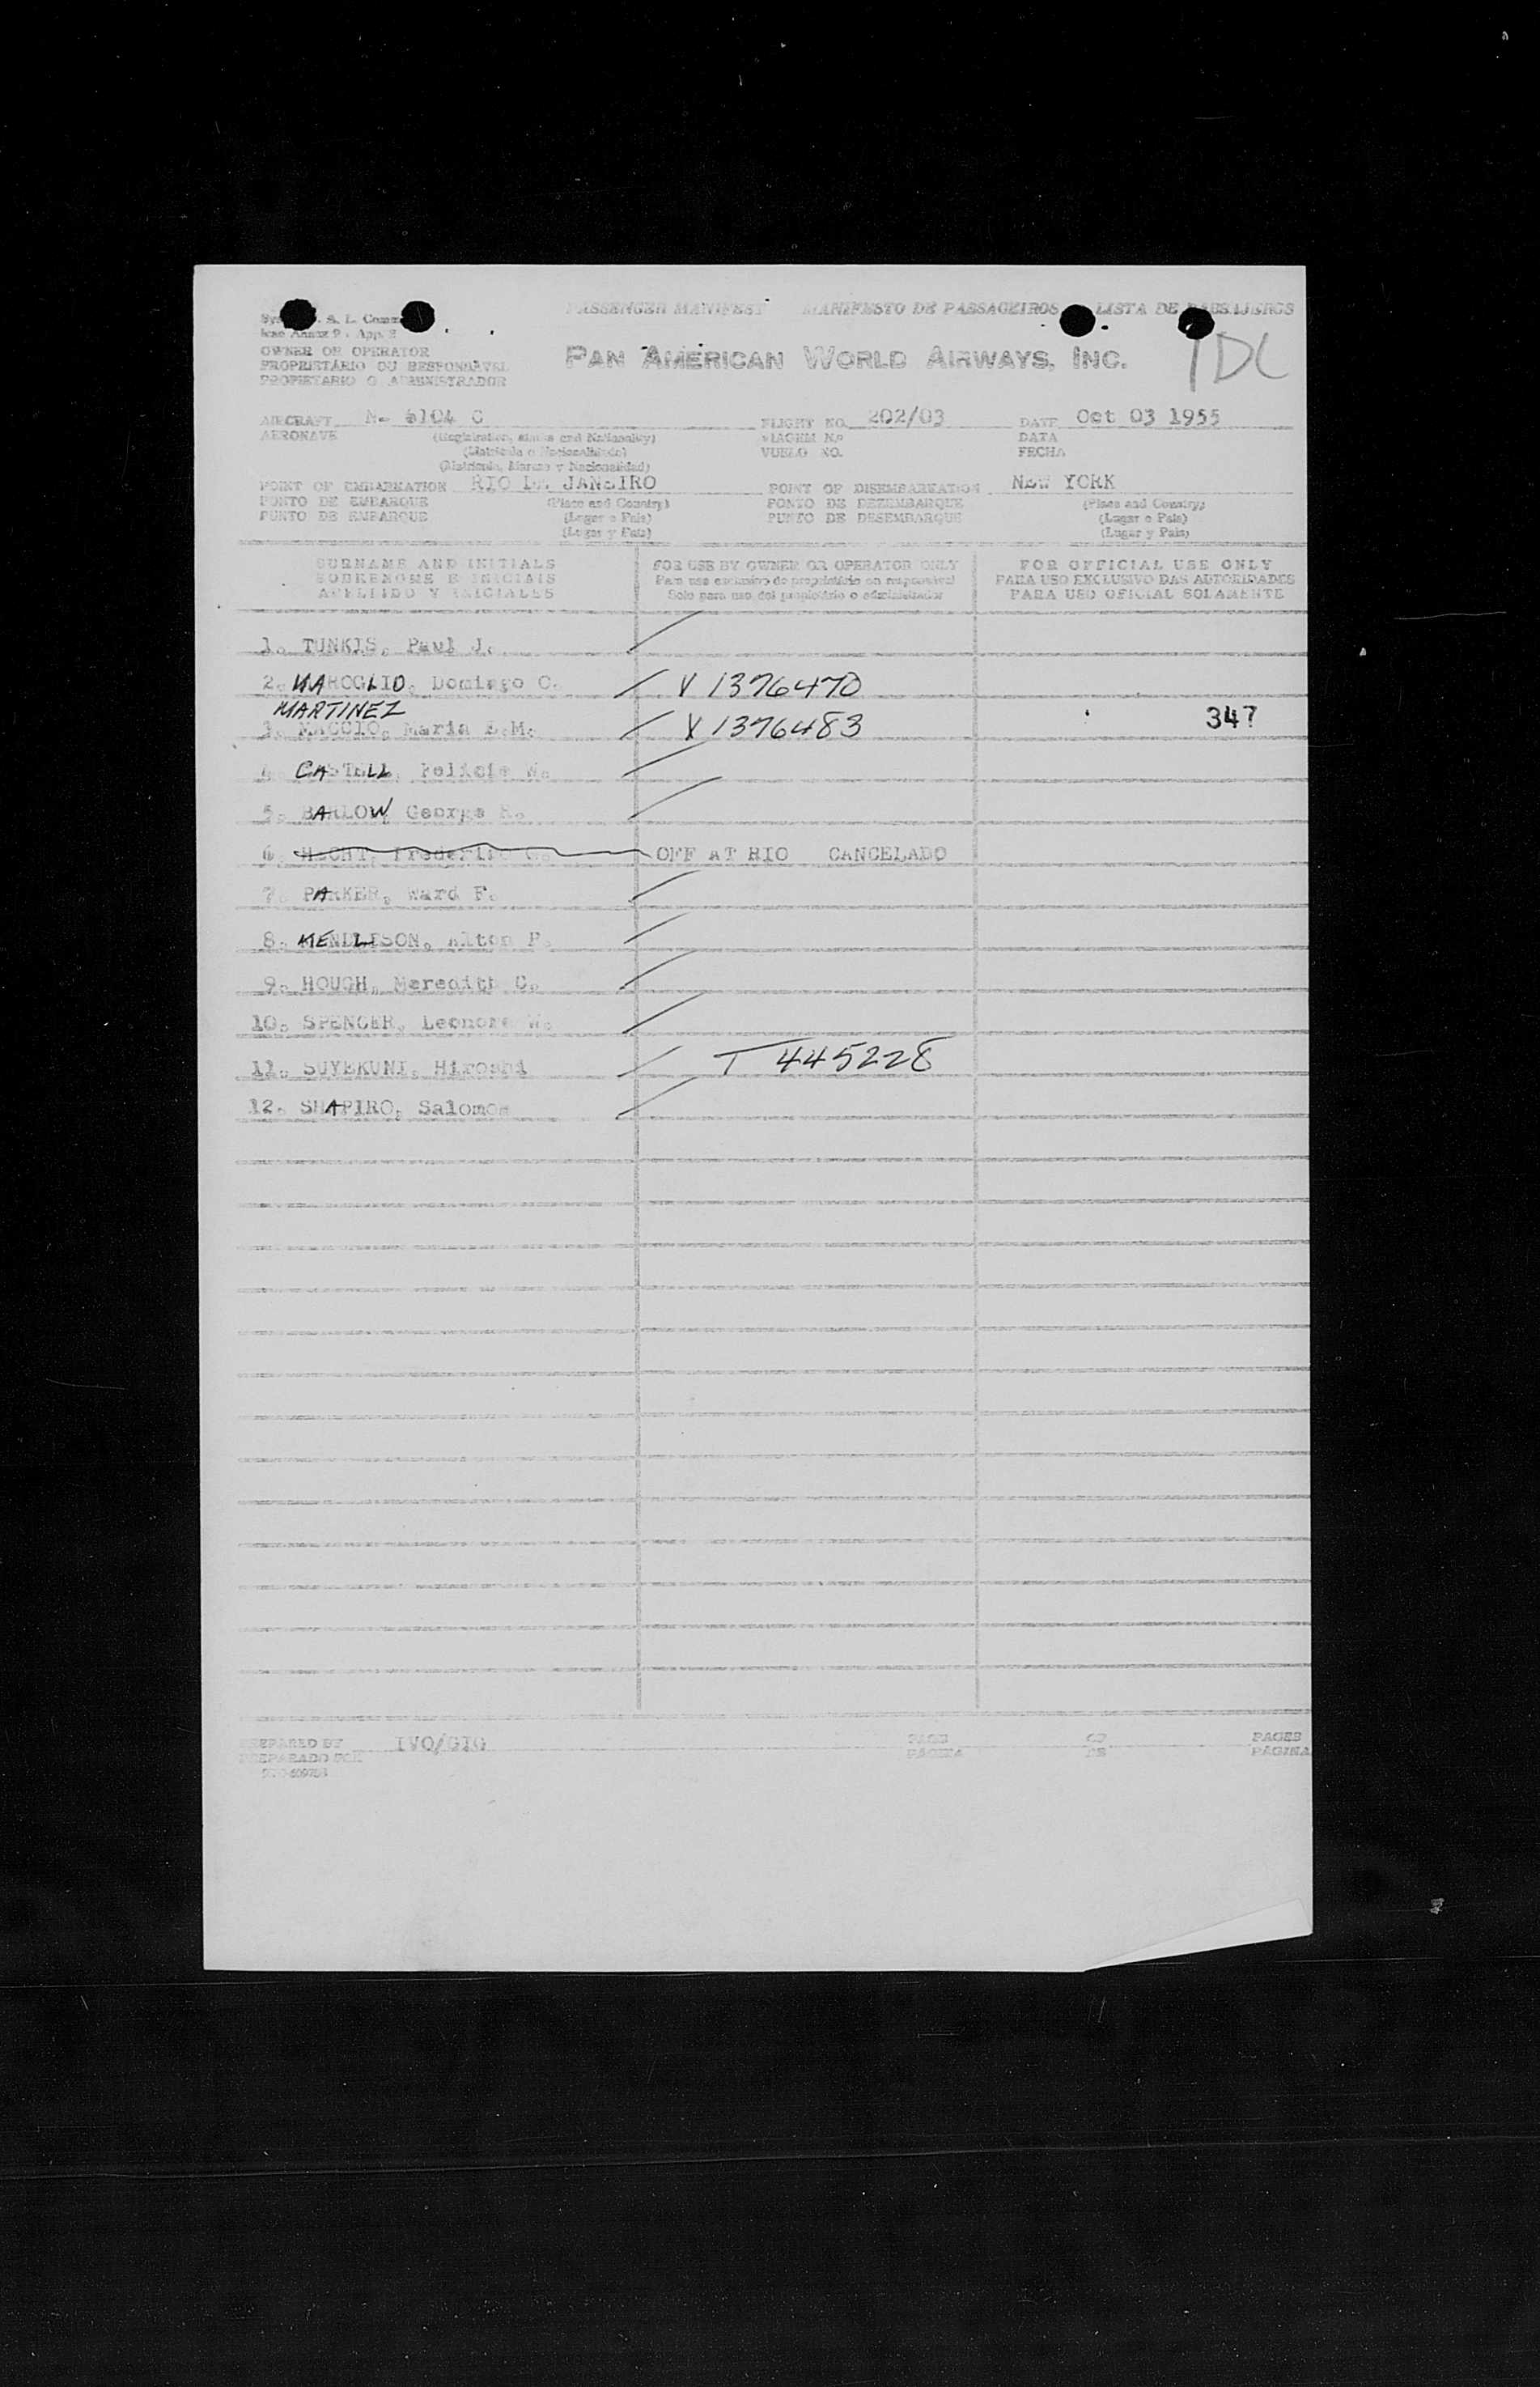 PASSENGER MANIFEST MANIFESTO DE PASSAGEIROS LISTA DE PASAJEROS
A. L. Icao Annex 9 - App. 
OWNER OR OPERATOR
PROPRIETÁRIO OU RESPONSÁVEL
PROPIETARIO O ADMINISTRADOR
PAN AMERICAN WORLD AIRWAYS, INC.
AIRCRAFT N- 6104 C FLIGHT NO. 202/03 DATE Oct 03 1955
AERONAVE (Registration, marks and Nationality) VIAGEM No DATA
(Matrícula e Nacionalidade) VUELO NO. FECHA
(Matrícula, Marcas y Nacionalidad)
POINT OF EMBARKATION RIO DE JANEIRO POINT OF DISEMBARKATION NEW YORK
PONTO DE EMBARQUE (Place and Country) PONTO DE DEZEMBARQUE (Place and Country)
PUNTO DE EMBARQUE (Lugar e Pais) PUNTO DE DESEMBARQUE (Lugar e Pais)
(Lugar y Pais) (Lugar y Pais)
SURNAME AND INITIALS FOR USE BY OWNER OR OPERATOR ONLY FOR OFFICIAL USE ONLY
SOBRENOME E INICIAIS Para uso exclusivo do proprietário ou responsável PARA USO EXCLUSIVO DAS AUTORIDADES
APELLIDO Y INICIALES Solo para uso del propietário o administrador PARA USO OFICIAL SOLAMENTE
1. TUNKIS, Paul J.
2. MAROGLIO, Domingo O. V 1376470
MARTINEZ
3. MACCIO, Maria E.M. V 1376483 347
4. CASTELL, Felicia W.
5. BARLOW George R.
6. HECHT, Frederico G. OFF AT RIO CANCELADO
7. PARKER, Ward F.
8. KENDLESON, Alton P.
9. HOUGH, Meredith C.
10. SPENCER, Leonore W.
11. SUYEKUNI, Hiroshi T 445228
12. SHAPIRO, Salomon
PREPARED BY IVO/GIG PAGE OF PAGES
PREPARADO POR PÁGINA DE PAGINA